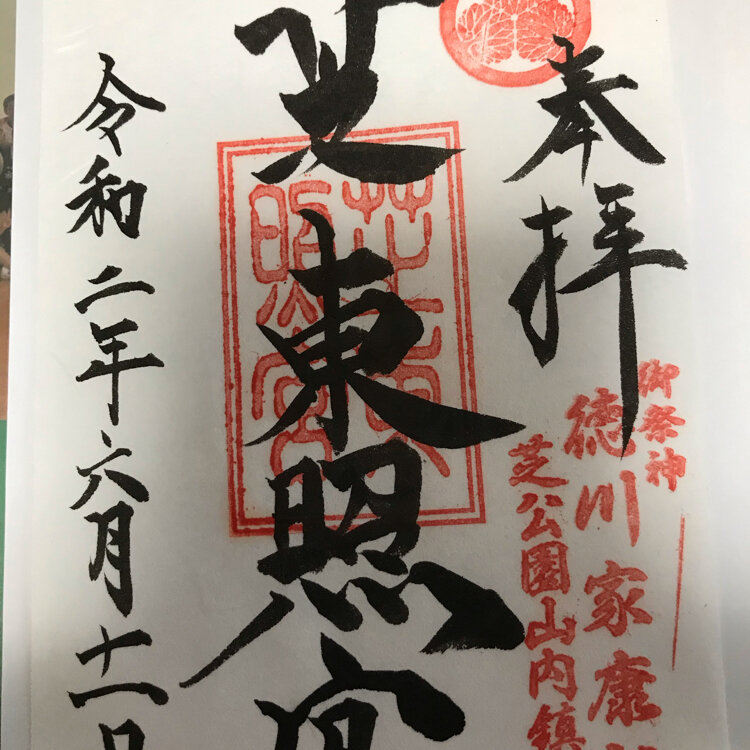 奉拝
御祭神
徳川家康
芝公園山内鎮
芝東照宮
芝東照宮
令和二年六月十一日